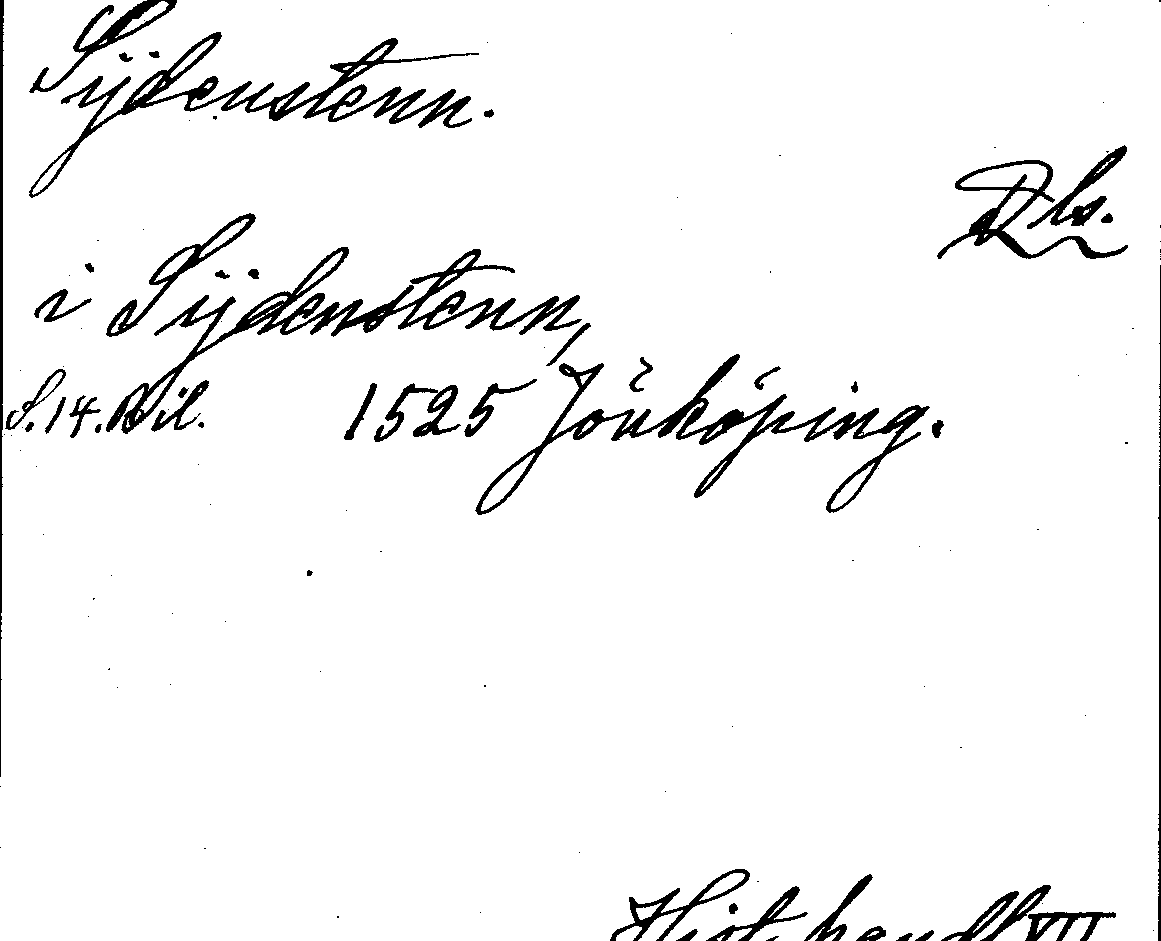 Sÿdenstenn.
Rls.
i Sÿdenstenn,
S.14. Bil. 1525 Jönköping.
Hist. handl VII